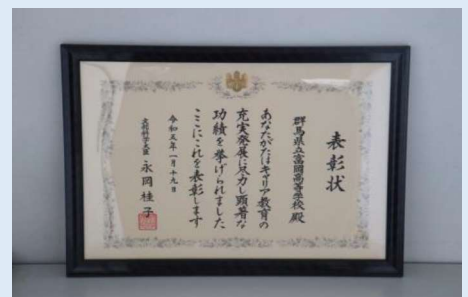 表彰状
群馬県立富岡高等学校 殿
あなたがたはキャリア教育の
充実発展に尽力し顕著な
功績を挙げられました
ここにこれを表彰します
令和五年一月十九日
文部科学大臣 永岡桂子